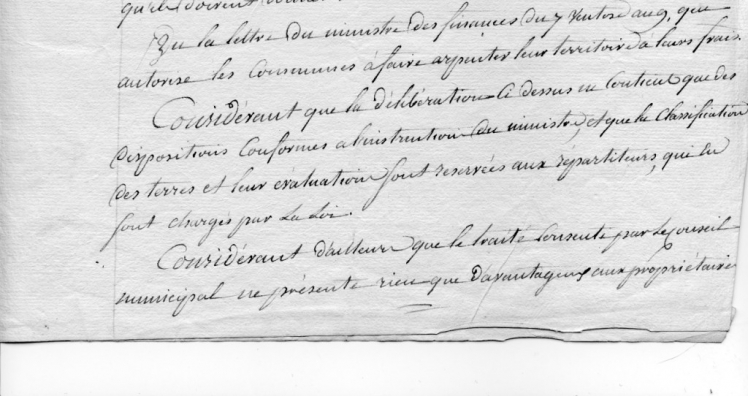 qu'ils doivent
Vu la lettre du ministre des finances du 7 ventose an 9, qui
autorise les Communes à faire arpenter leur territoire à leurs frais.
Considérant que la délibération Ci dessus ne Contient que des
dispositions Conformes a l'instruction du ministre, et que la Classification
des terres et leur evaluation sont reservées aux répartiteurs, qui en
sont chargés par La Loi.
Considérant d'ailleurs que le traité Consenti par Le Conseil
municipal ne présente rien que d'avantageux aux propriétaires